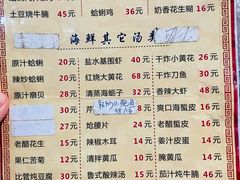 土豆烧牛腩 45元 蛤蜊鸡 奶香花生糊 16元
海鲜其它汤类
原汁蛤蜊 20元 盐水基围虾 60元 干炸小黄花 26元
辣炒蛤蜊 20元 红烧大黄花 60元 干炸刀鱼 30元
原汁扇贝 28元 清蒸海蛎子 38元 香辣大虾 60元
芹 爽口海蜇皮 30元
炝腰片 24元 老醋蜇皮 30元
老醋花生 12元 辣椒木耳 20元 姜汁皮蛋 20元
果仁苦菊 12元 清拌黄瓜 12元 腌黄瓜 12元
比管炖豆腐 30元 鲁式酸辣汤 15元 茄汁炖牛腩 46元